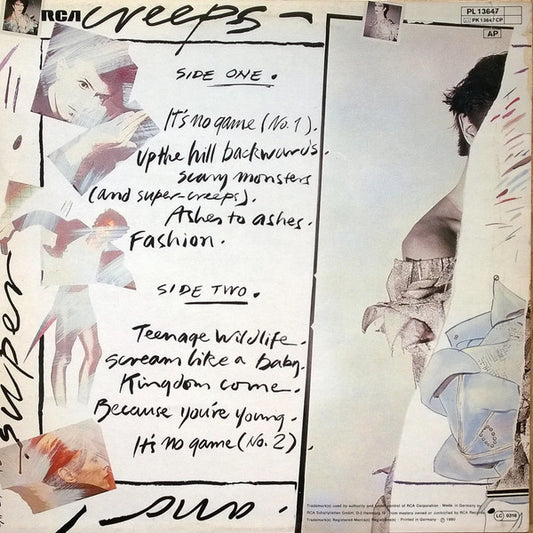 RCA
creeps
PL 13647
PK 13647 CP
AP
SIDE ONE.
It's no game (No. 1).
Up the hill backwards.
Scary monsters
(and super-creeps).
Ashes to ashes.
Fashion.
SIDE TWO.
Teenage Wildlife.
Scream like a baby.
Kingdom come.
Because you're young.
It's no game (No. 2).
super
and
Trademark(s) used by authority and under control of RCA Corporation · Made in Germany by
RCA Schallplatten GmbH, D-2 Hamburg
from masters owned or controlled by RCA Records
Trademark(s) Registered Marca(s) Registrada(s) · Printed in Germany Ⓟ 1980
LC 0316